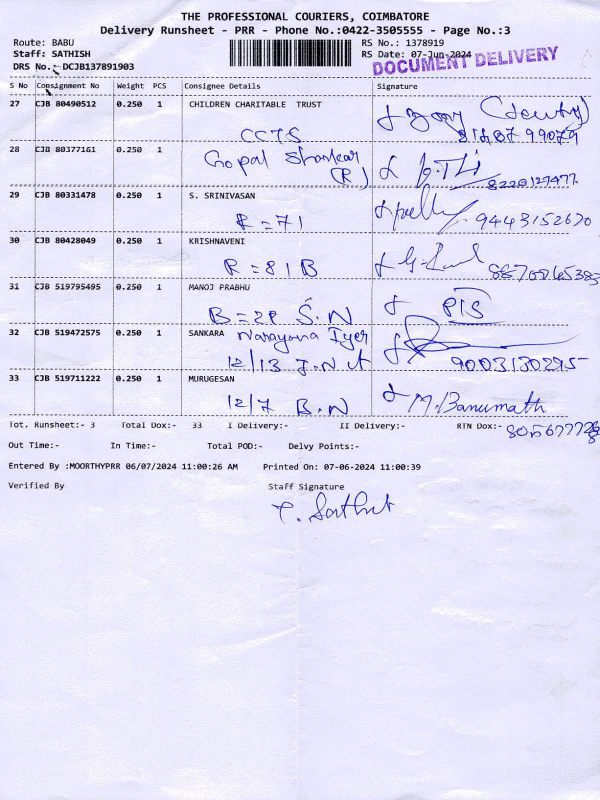 THE PROFESSIONAL COURIERS, COIMBATORE
Delivery Runsheet - PRR - Phone No.:0422-3505555 - Page No.:3
Route: BABU RS No.: 1378919
Staff: SATHISH RS Date: 07-Jun-2024
DOCUMENT DELIVERY
DRS No.:- DCJB137891903
S No Consignment No Weight PCS Consignee Details Signature
27 CJB 80490512 0.250 1 CHILDREN CHARITABLE TRUST
CCTS
28 CJB 80377161 0.250 1 Gopal Shankar
(R) 8220127477
29 CJB 80331478 0.250 1 S. SRINIVASAN
R = 71 9443152670
30 CJB 80428049 0.250 1 KRISHNAVENI
R = 81 B
31 CJB 519795495 0.250 1 MANOJ PRABHU
B = 29 S.N PIS
32 CJB 519472575 0.250 1 SANKARA Narayana Iyer
12/13 J.N 9003130295
33 CJB 519711222 0.250 1 MURUGESAN
12/7 B.N M. Banumath
Tot. Runsheet:- 3 Total Dox:- 33 I Delivery:- II Delivery:- RTN Dox:-
Out Time:- In Time:- Total POD:- Delvy Points:-
Entered By :MOORTHYPRR 06/07/2024 11:00:26 AM Printed On: 07-06-2024 11:00:39
Verified By Staff Signature
T. Sathish